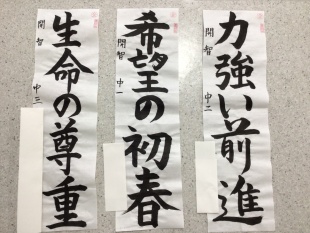 力強い前進
開智 中二
希望の初春
開智 中一
生命の尊重
開智 中三